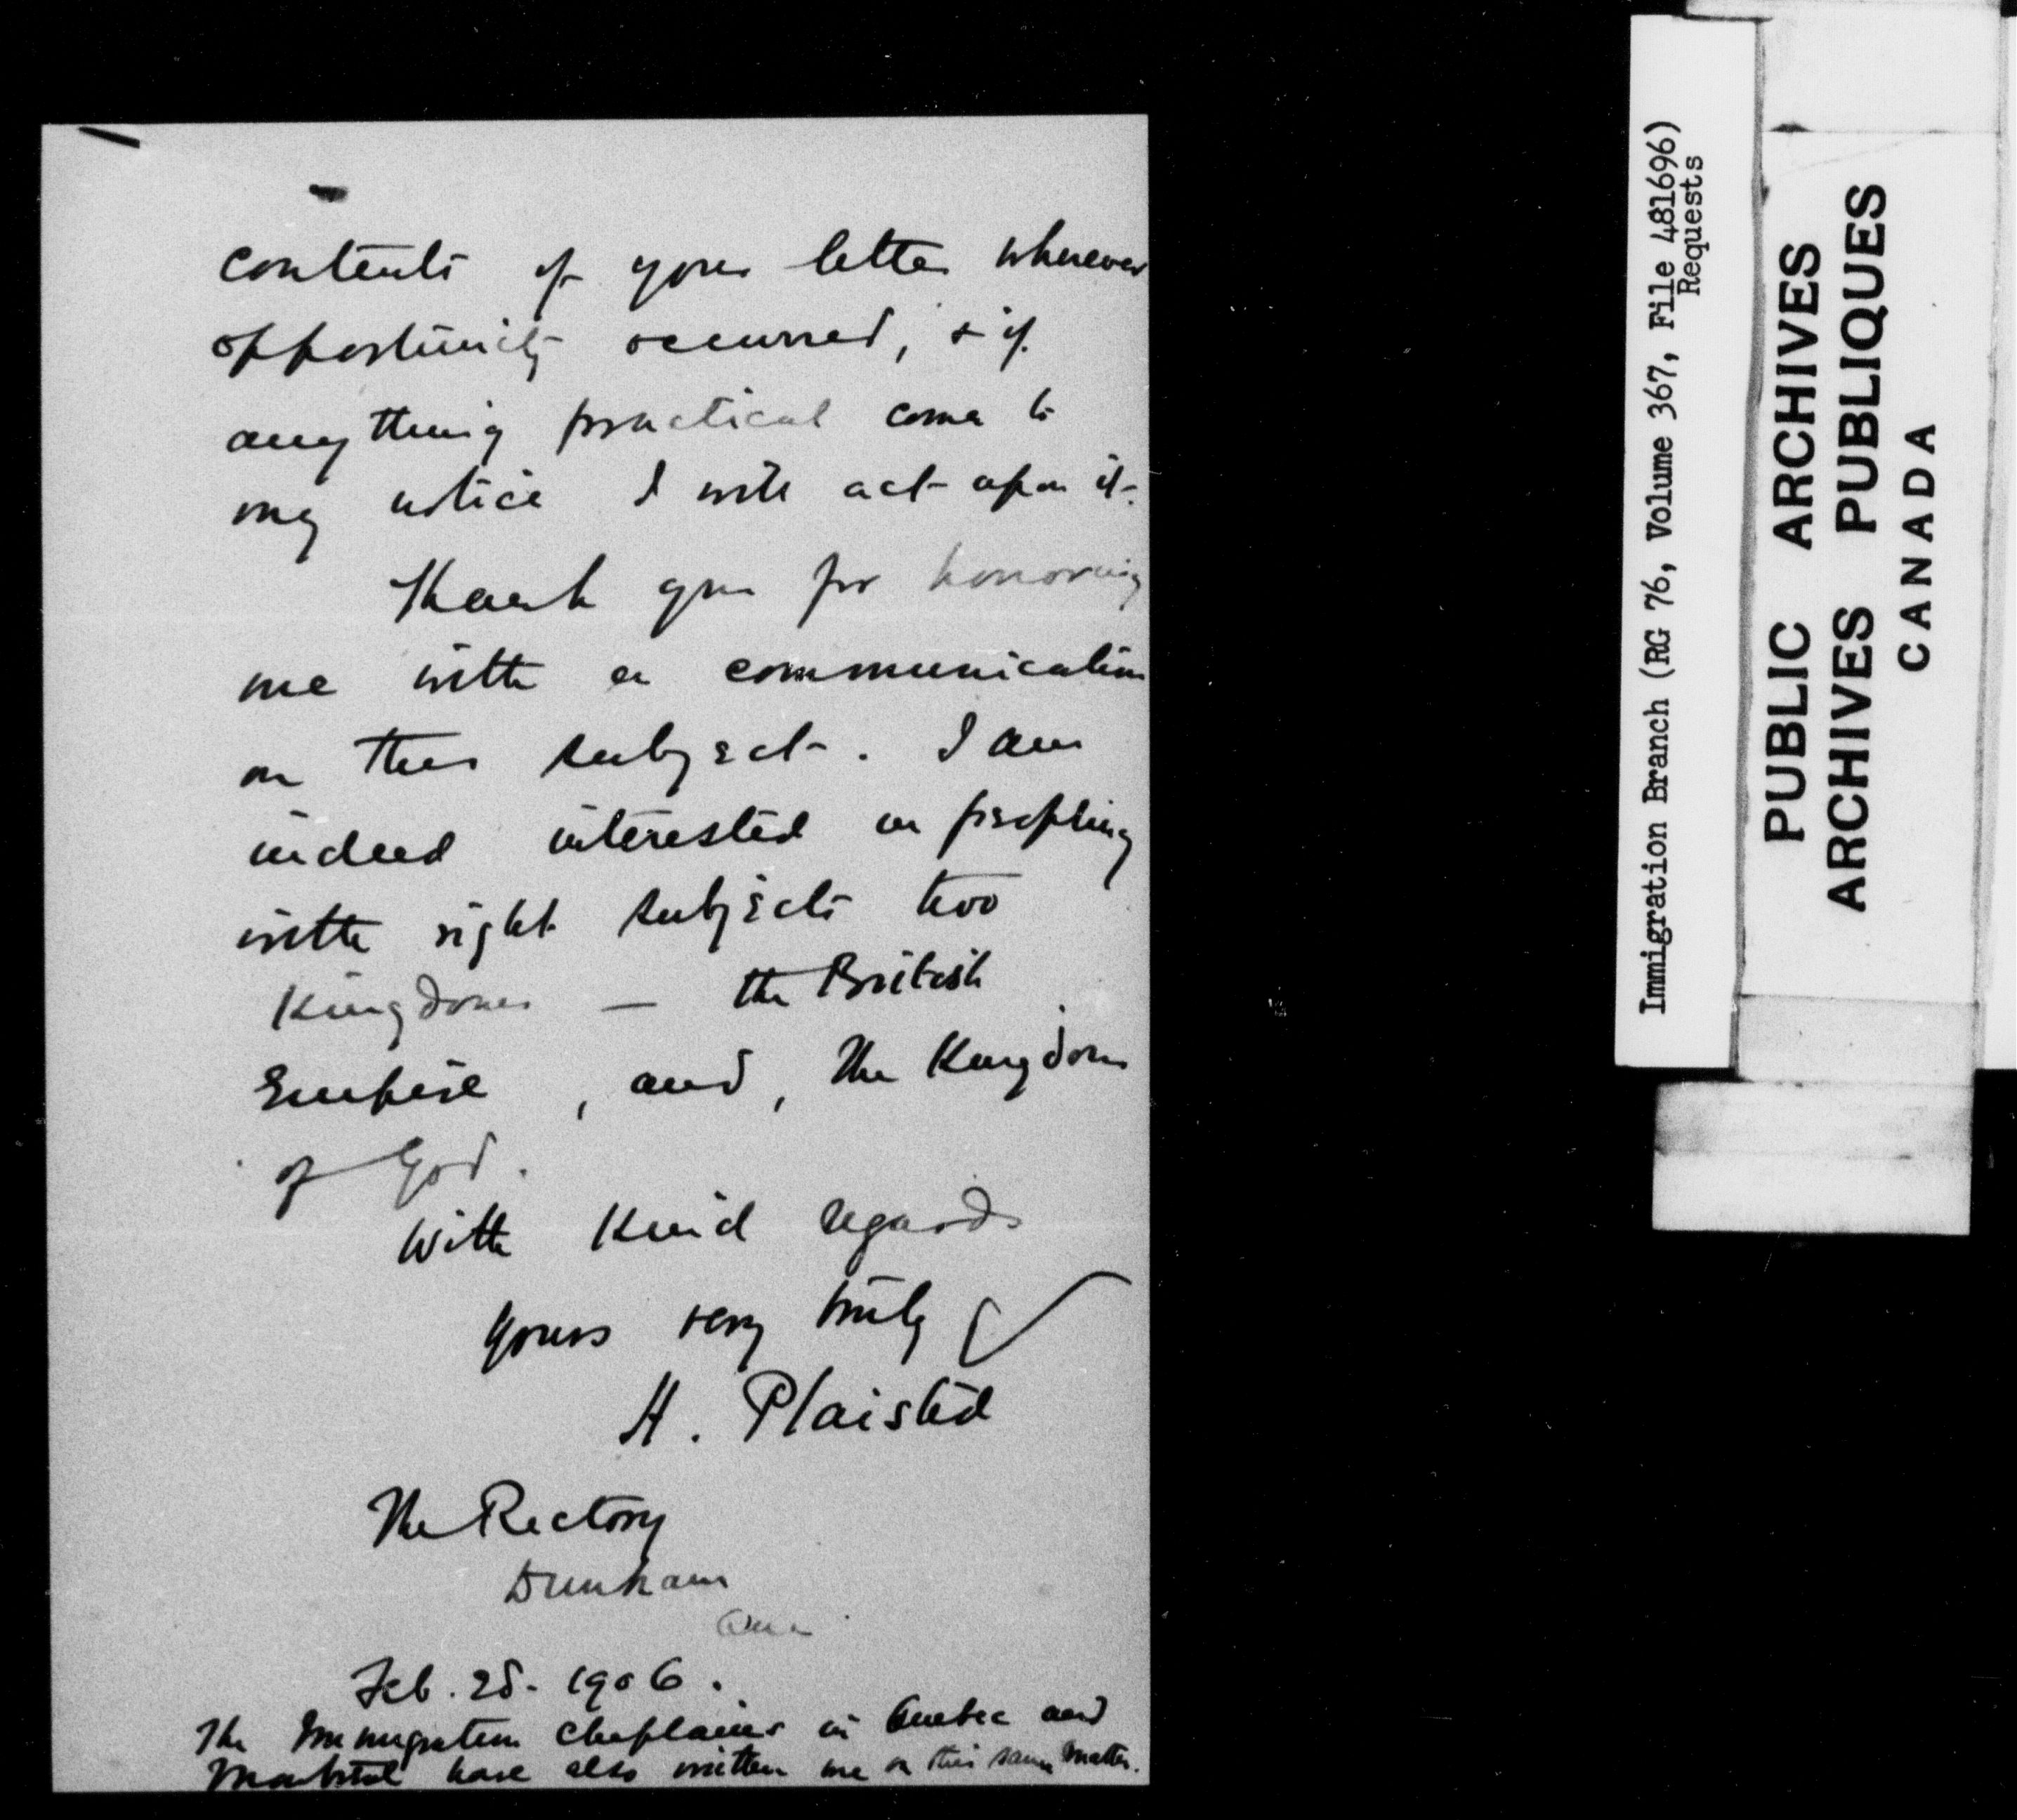 contents of your letter wherever
opportunity occurred, & if
anything practical come to
my notice I will act upon it.
Thank you for honoring
me with a communication
on this subject. I am
indeed interested in peopling
with right subjects two
Kingdoms — the British
Empire, and, the Kingdom
of God.
With kind regards
yours very truly
H. Plaisted
The Rectory
Dunham
Que
Feb. 28. 1906.
The Immigration Chaplains in Quebec and
Montreal have also written me on this same matter.
Immigration Branch (RG 76, Volume 367, File 481696)
Requests
PUBLIC ARCHIVES
ARCHIVES PUBLIQUES
CANADA